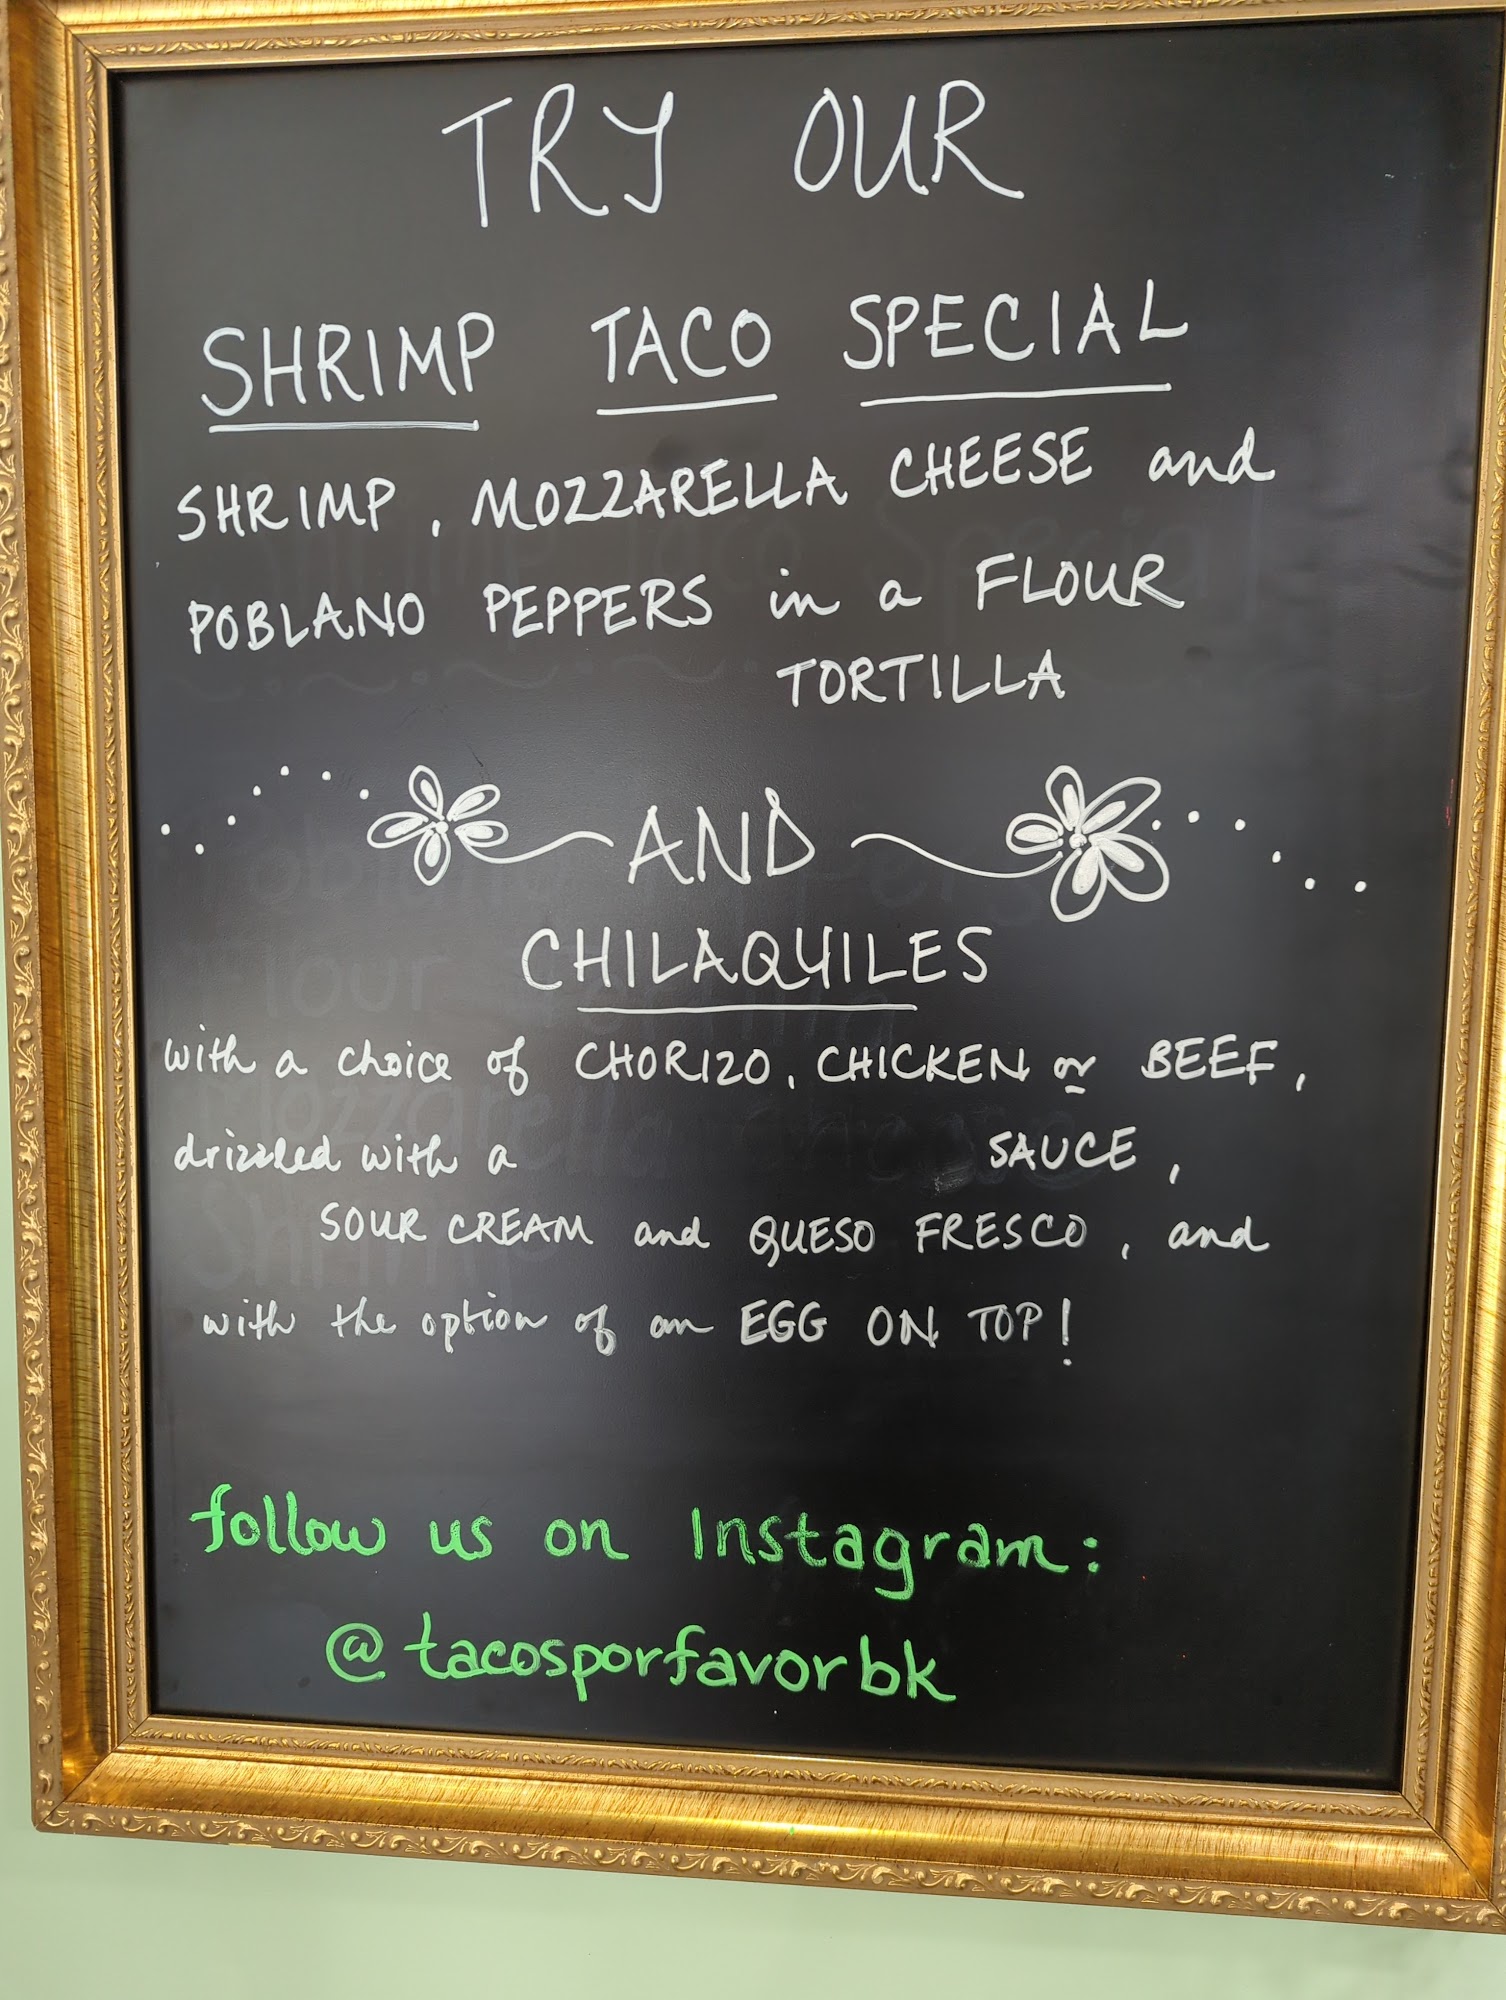 TRY OUR
SHRIMP TACO SPECIAL
SHRIMP, MOZZARELLA CHEESE and
POBLANO PEPPERS in a FLOUR
TORTILLA
AND
CHILAQUILES
with a choice of CHORIZO, CHICKEN or BEEF,
drizzled with a SAUCE,
SOUR CREAM and QUESO FRESCO, and
with the option of an EGG ON TOP!
follow us on Instagram:
@tacosporfavorbk